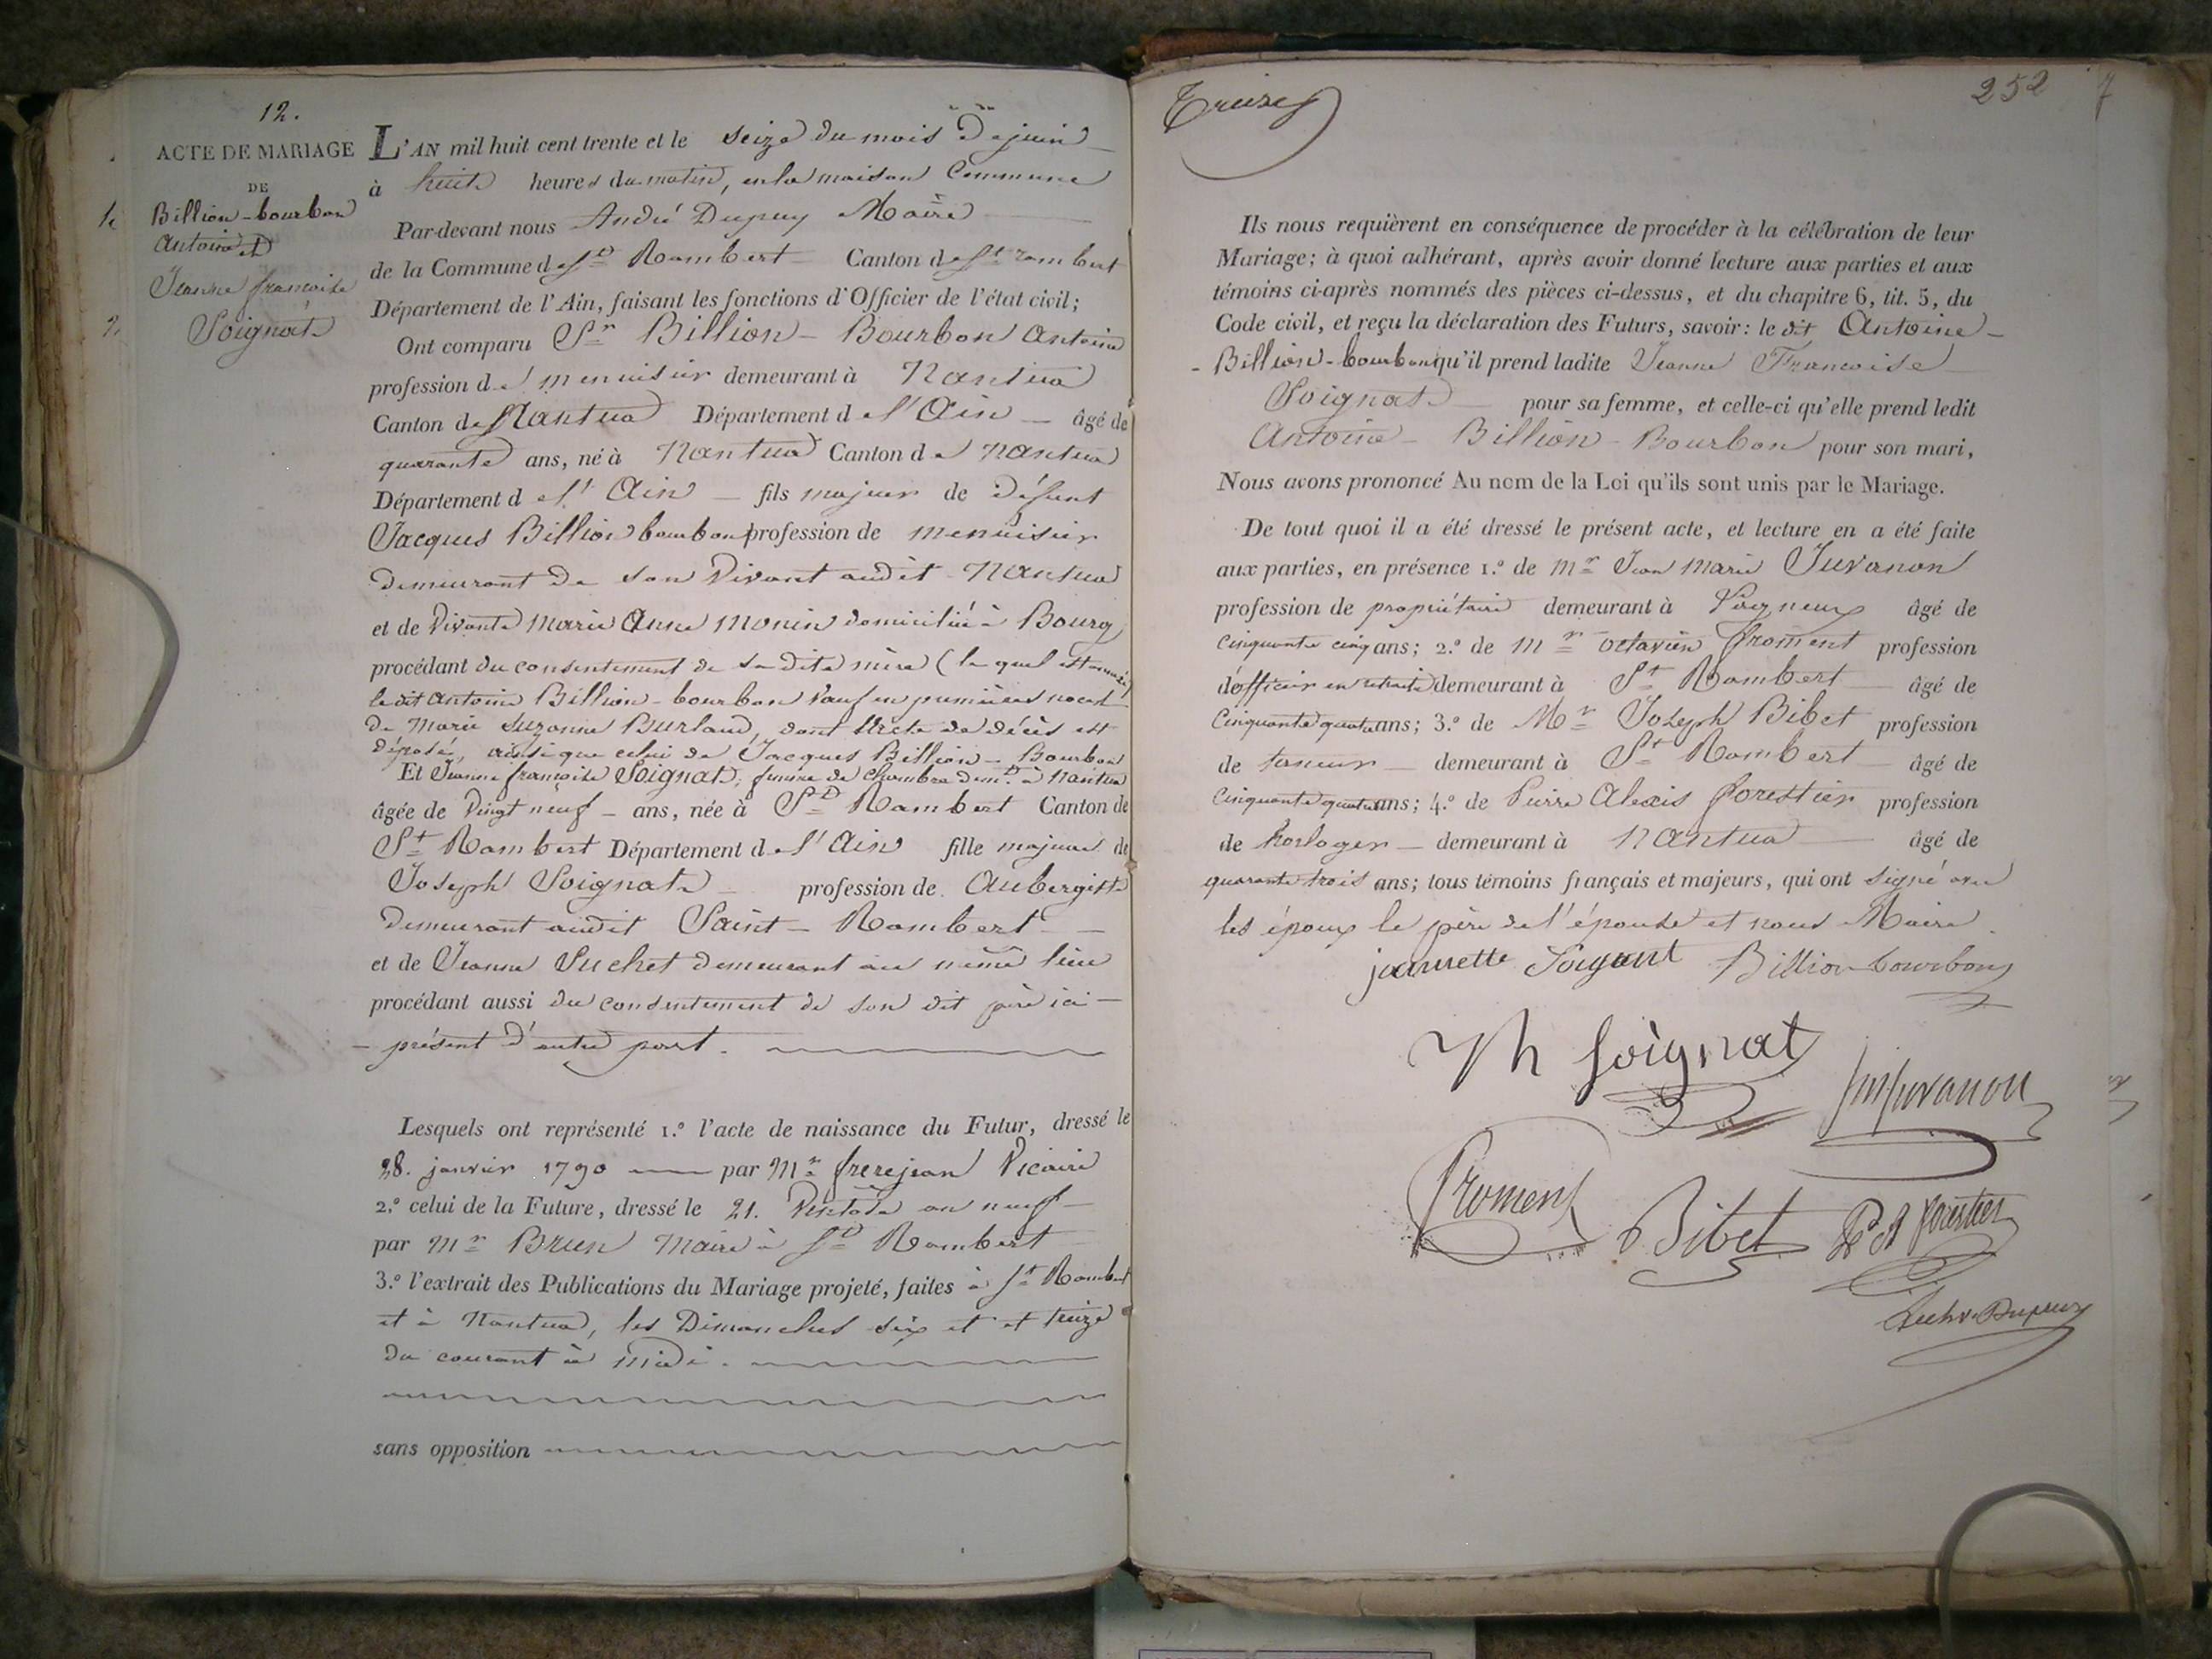 12.
ACTE DE MARIAGE
DE
Billion-bourbon
Antoine et
Jeanne françoise
Soignat
L'AN mil huit cent trente et le seize du mois de juin
à huit heures du matin, en la maison Commune
Par-devant nous André Dupuy Maire
de la Commune de St Rambert Canton de St rambert
Département de l'Ain, faisant les fonctions d'Officier de l'état civil;
Ont comparu Sr Billion-Bourbon Antoine
profession de menuisier demeurant à Nantua
Canton de Nantua Département de l'Ain âgé de
quarante ans, né à Nantua Canton de Nantua
Département de l'Ain fils majeur de défunt
Jacques Billion bourbon profession de menuisier
demeurant de son Vivant audit Nantua
et de Vivante Marie Anne Monin domiciliée à Bourg
procédant du consentement de sa dite mère (le quel est annexé)
le dit Antoine Billion-bourbon Veuf en premières noces
de Marie Suzanne Burland, dont l'acte de décès est
déposé, ainsi que celui de Jacques Billion-Bourbon
Et Jeanne françoise Soignat, femme de Chambre demt à Nantua
âgée de Vingt neuf ans, née à St Rambert Canton de
St Rambert Département de l'Ain fille majeure de
Joseph Soignat profession de Aubergiste
demeurant audit Saint-Rambert
et de Jeanne Suchet demeurant au même lieu
procédant aussi du consentement de son dit père ici
présent d'autre part.
Lesquels ont représenté 1.º l'acte de naissance du Futur, dressé le
28. janvier 1790 par Mr frerejean Vicaire
2.º celui de la Future, dressé le 21. Ventôse an neuf
par Mr Brun Maire à St Rambert
3.º l'extrait des Publications du Mariage projeté, faites à St Rambert
et à Nantua, les Dimanches six et et treize
du courant à midi.
sans opposition
252
7
Ils nous requièrent en conséquence de procéder à la célébration de leur
Mariage; à quoi adhérant, après avoir donné lecture aux parties et aux
témoins ci-après nommés des pièces ci-dessus, et du chapitre 6, tit. 5, du
Code civil, et reçu la déclaration des Futurs, savoir: le dit Antoine
Billion-bourbon qu'il prend ladite Jeanne Françoise
Soignat pour sa femme, et celle-ci qu'elle prend ledit
Antoine-Billion-Bourbon pour son mari,
Nous avons prononcé Au nom de la Loi qu'ils sont unis par le Mariage.
De tout quoi il a été dressé le présent acte, et lecture en a été faite
aux parties, en présence 1.º de Mr Jean Marie Juvanon
profession de propriétaire demeurant à âgé de
cinquante cinq ans; 2.º de Mr octavien froment profession
d'officier en retraite demeurant à St Rambert âgé de
cinquante quatre ans; 3.º de Mr Joseph Bibet profession
de taneur demeurant à St Rambert âgé de
cinquante quatre ans; 4.º de Pierre Alexis forestier profession
de horloger demeurant à Nantua âgé de
quarante trois ans; tous témoins français et majeurs, qui ont signé avec
les époux le père de l'épouse et nous Maire.
jeannette Soignat Billion-bourbon
Jh Soignat
Juvanon
Froment Bibet P A forestier
Dupuy